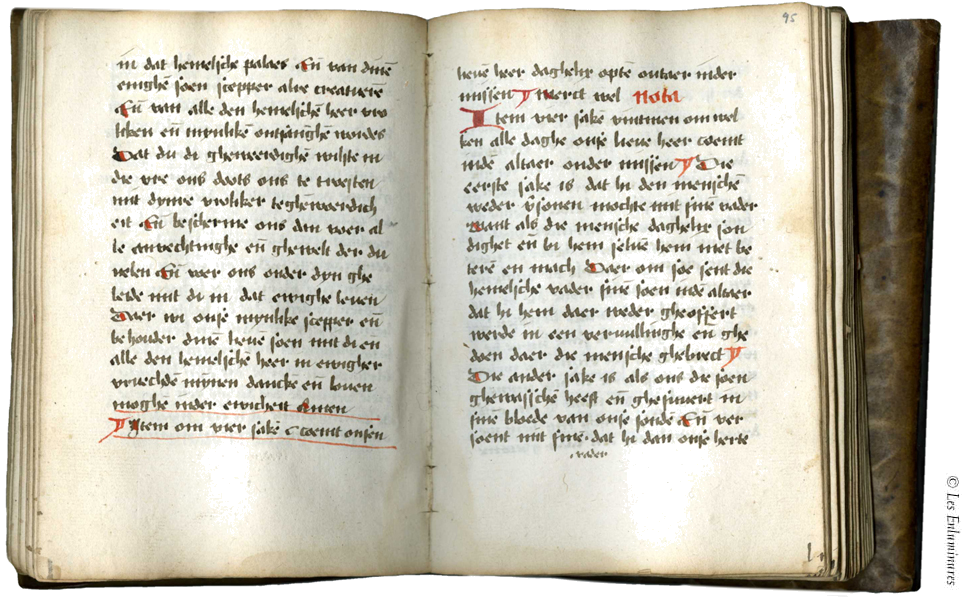 in dat hemelsche palaes Eñ van dinē
enighē soen scepper alre creatuere
Eñ van alle den hemelschē heer vro
liken eñ mynlikē ontfanghē wordes
Dat du di ghewerdighē wilste in
die vre ons doots ons te troesten
mit dynre vroliker teghēwoerdich
eit Eñ bescherme ons dan voer al
le anvechtinghe eñ ghewelt der du
velen Eñ voer ons onder dyn ghe
leide mit di in dat ewighe leven
Daer wi onse mynlike scepper eñ
behouder dinē lieuē soen mit di en
alle den hemelschē heer in ewigher
vruechdē mynnen dancken eñ louen
moghē inder ewicheit Amen
Item om vier sakē coemt onsen
95
lieuē heer daghelix optē outaer inder
missen merct wel Nota
Item vier sake vintmen om wel
ken alle daghe onse lieue heer coemt
indē altaer onder missen Die
eerste sake is dat hi den menschē
weder versonen mochte mit sinē vader
Want als die mensche daghelix son
dighet eñ bi hem seluē hem niet be
terē en mach Daer om soe sent die
hemelsche vader sinē soen indē altaer
dat hi hem daer weder gheoffert
werde in een vervullinghe eñ ghe
doen daer die mensche ghebrect
Die ander sake is als ons die soen
ghewasschē heeft eñ ghesuuert in
sinē bloede van onse sonde Eñ ver
soent mit sinē dat hi dan onse herte
vader
© Les Enluminures